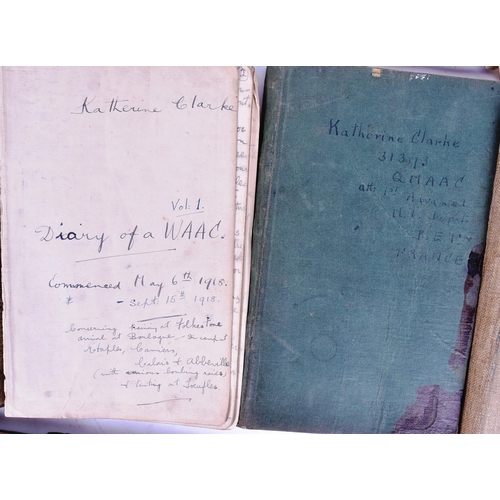 Katherine Clarke
Vol: 1.
Diary of a WAAC.
Commenced May 6th 1918.
- Sept 15th 1918.
Concerning training at Folkestone
arrival at Boulogne & camp at
Etaples, Camiers,
Calais & Abbeville
(with various bombing raids)
& at
Katherine Clarke
31393
QMAAC
att 1st Advanced
M.T. Depot
B.E.F.
FRANCE